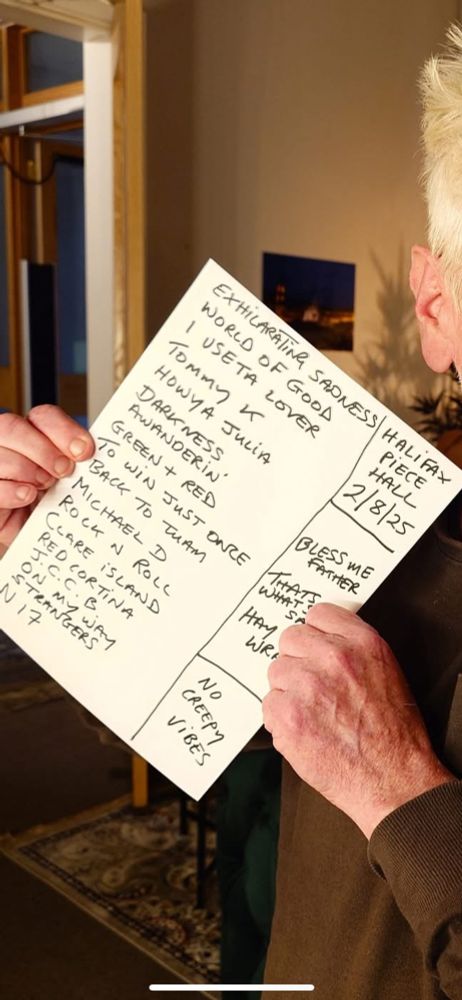 EXHILARATING SADNESS
WORLD OF GOOD
I USETA LOVER
TOMMY K
HOWYA JULIA
DARKNESS
AWANDERIN'
GREEN + RED
TO WIN JUST ONCE
BACK TO TUAM
MICHAEL D
ROCK N ROLL
CLARE ISLAND
RED CORTINA
J.C.C.B
ON MY WAY
STRANGERS
N17
HALIFAX
PIECE
HALL
2/8/25
BLESS ME
FATHER
THATS
WHAT
HAY
NO
CREEPY
VIBES